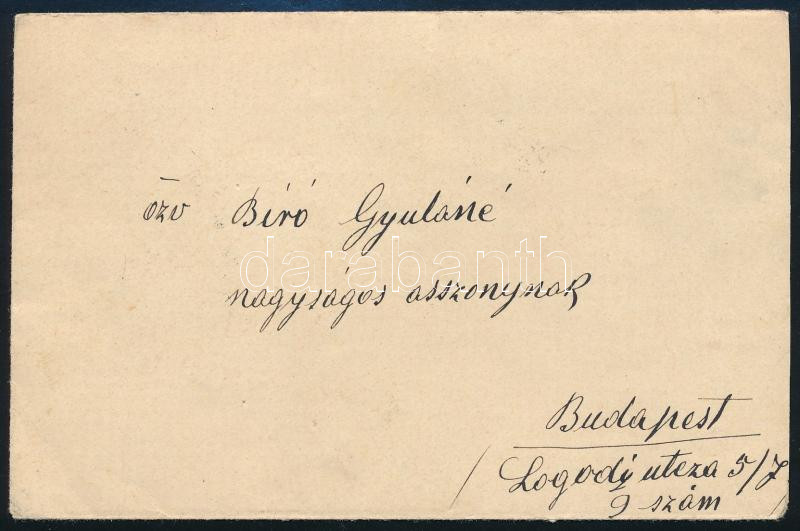 özv Bíró Gyuláné
darabanth
nagyságos asszonynak
Budapest
Logodi utcza 5/7
9 szám